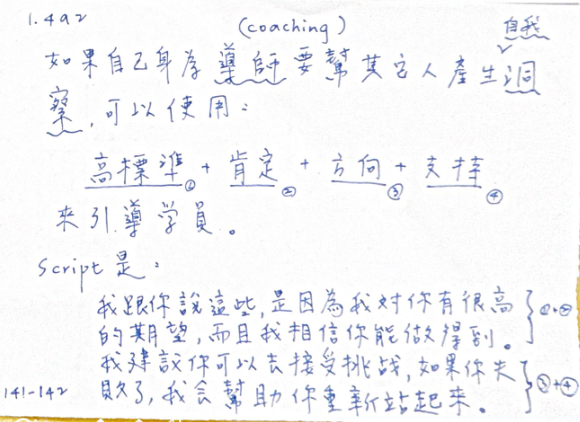 1.4a2
(coaching)
自我
如果自己身為導師要幫其它人產生洞
察，可以使用：
高標準① + 肯定② + 方向③ + 支持④
來引導学員。
Script 是：
我跟你說這些，是因為我對你有很高
的期望，而且我相信你能做得到。 ①+②
我建議你可以去接受挑战，如果你失
敗了，我会幫助你重新站起來。 ③+④
141-142